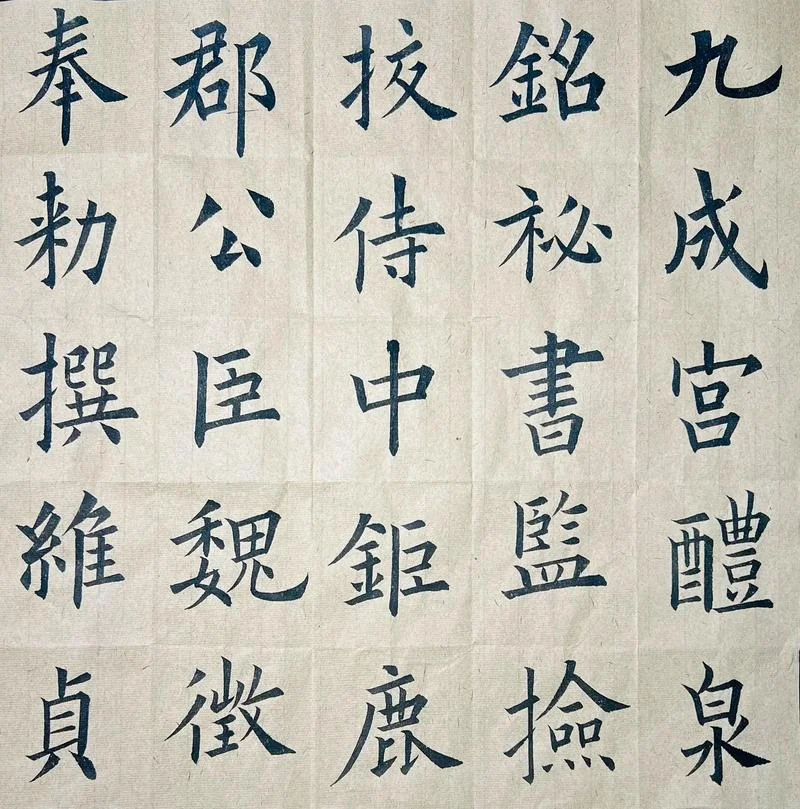 九成宮醴泉
銘祕書監撿
挍侍中鉅鹿
郡公臣魏徵
奉勑撰維貞